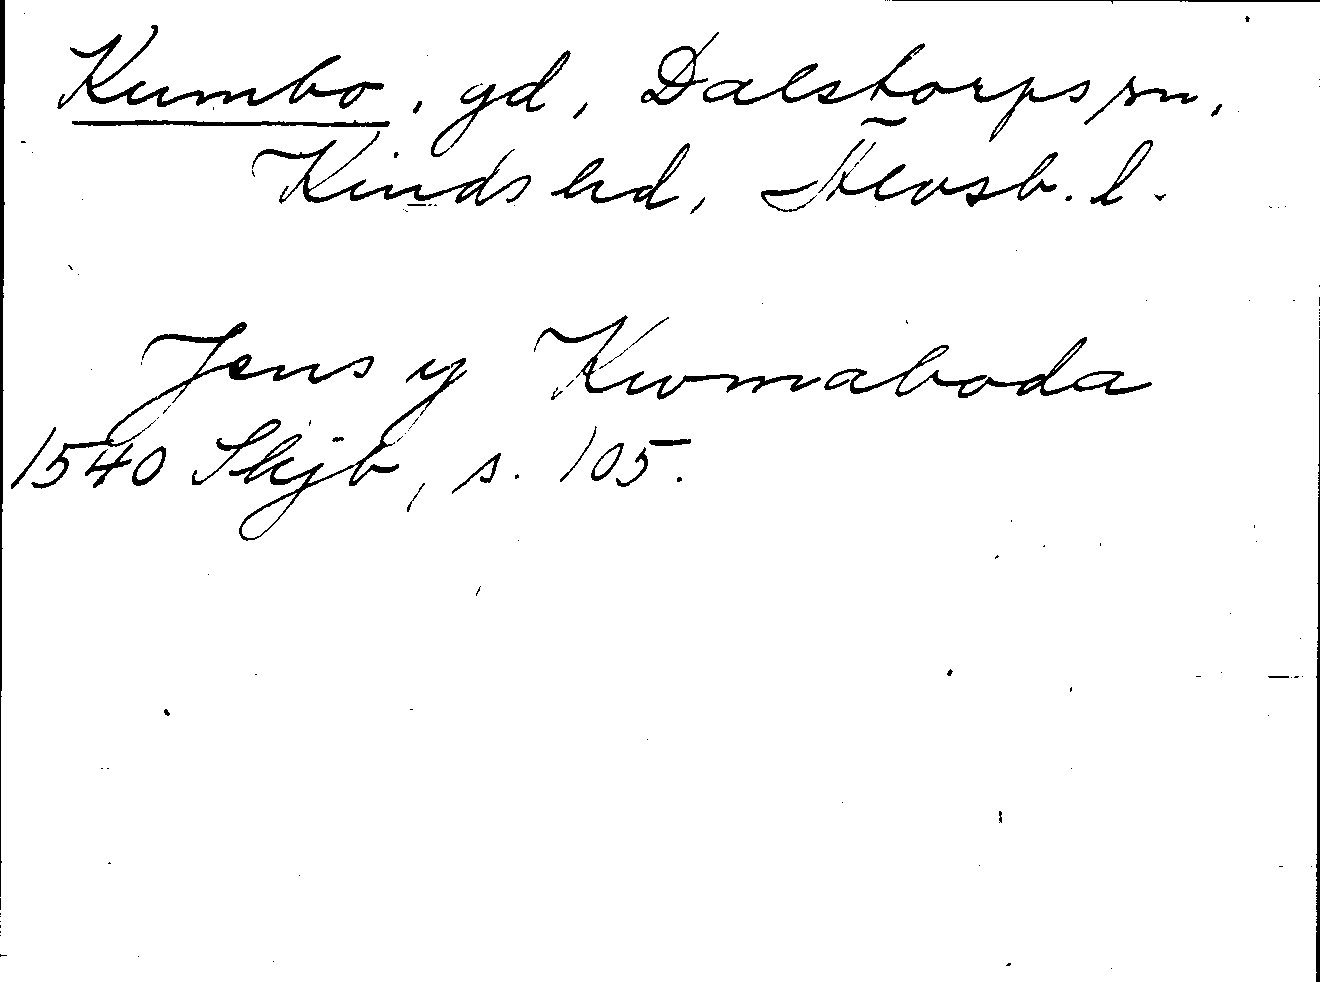 Kumbo, gd, Dalstorps sn,
Kinds hd, Älvsb. l.
Jens y Kwmaboda
1540 Skjb, s. 105.